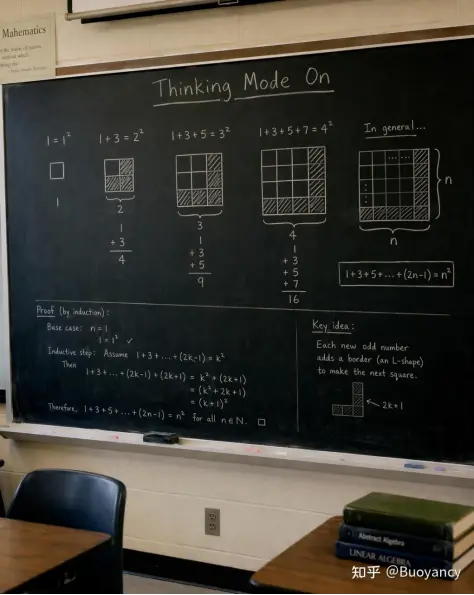 Mahematics
Thinking Mode On
1 = 1²
1 + 3 = 2²
1 + 3 + 5 = 3²
1 + 3 + 5 + 7 = 4²
In general...
1
2
1
+ 3
4
3
1
+ 3
+ 5
9
4
1
+ 3
+ 5
+ 7
16
n
n
1 + 3 + 5 + ... + (2n-1) = n²
Proof (by induction):
Base case: n = 1
1 = 1² ✓
Inductive step: Assume 1 + 3 + ... + (2k-1) = k²
Then
1 + 3 + ... + (2k-1) + (2k+1) = k² + (2k+1)
= (k² + 2k + 1)
= (k+1)²
Therefore, 1 + 3 + 5 + ... + (2n-1) = n² for all n∈N. □
Key idea:
Each new odd number
adds a border (an L-shape)
to make the next square.
2k+1
Abstract Algebra
LINEAR ALGEBRA
知乎 @Buoyancy